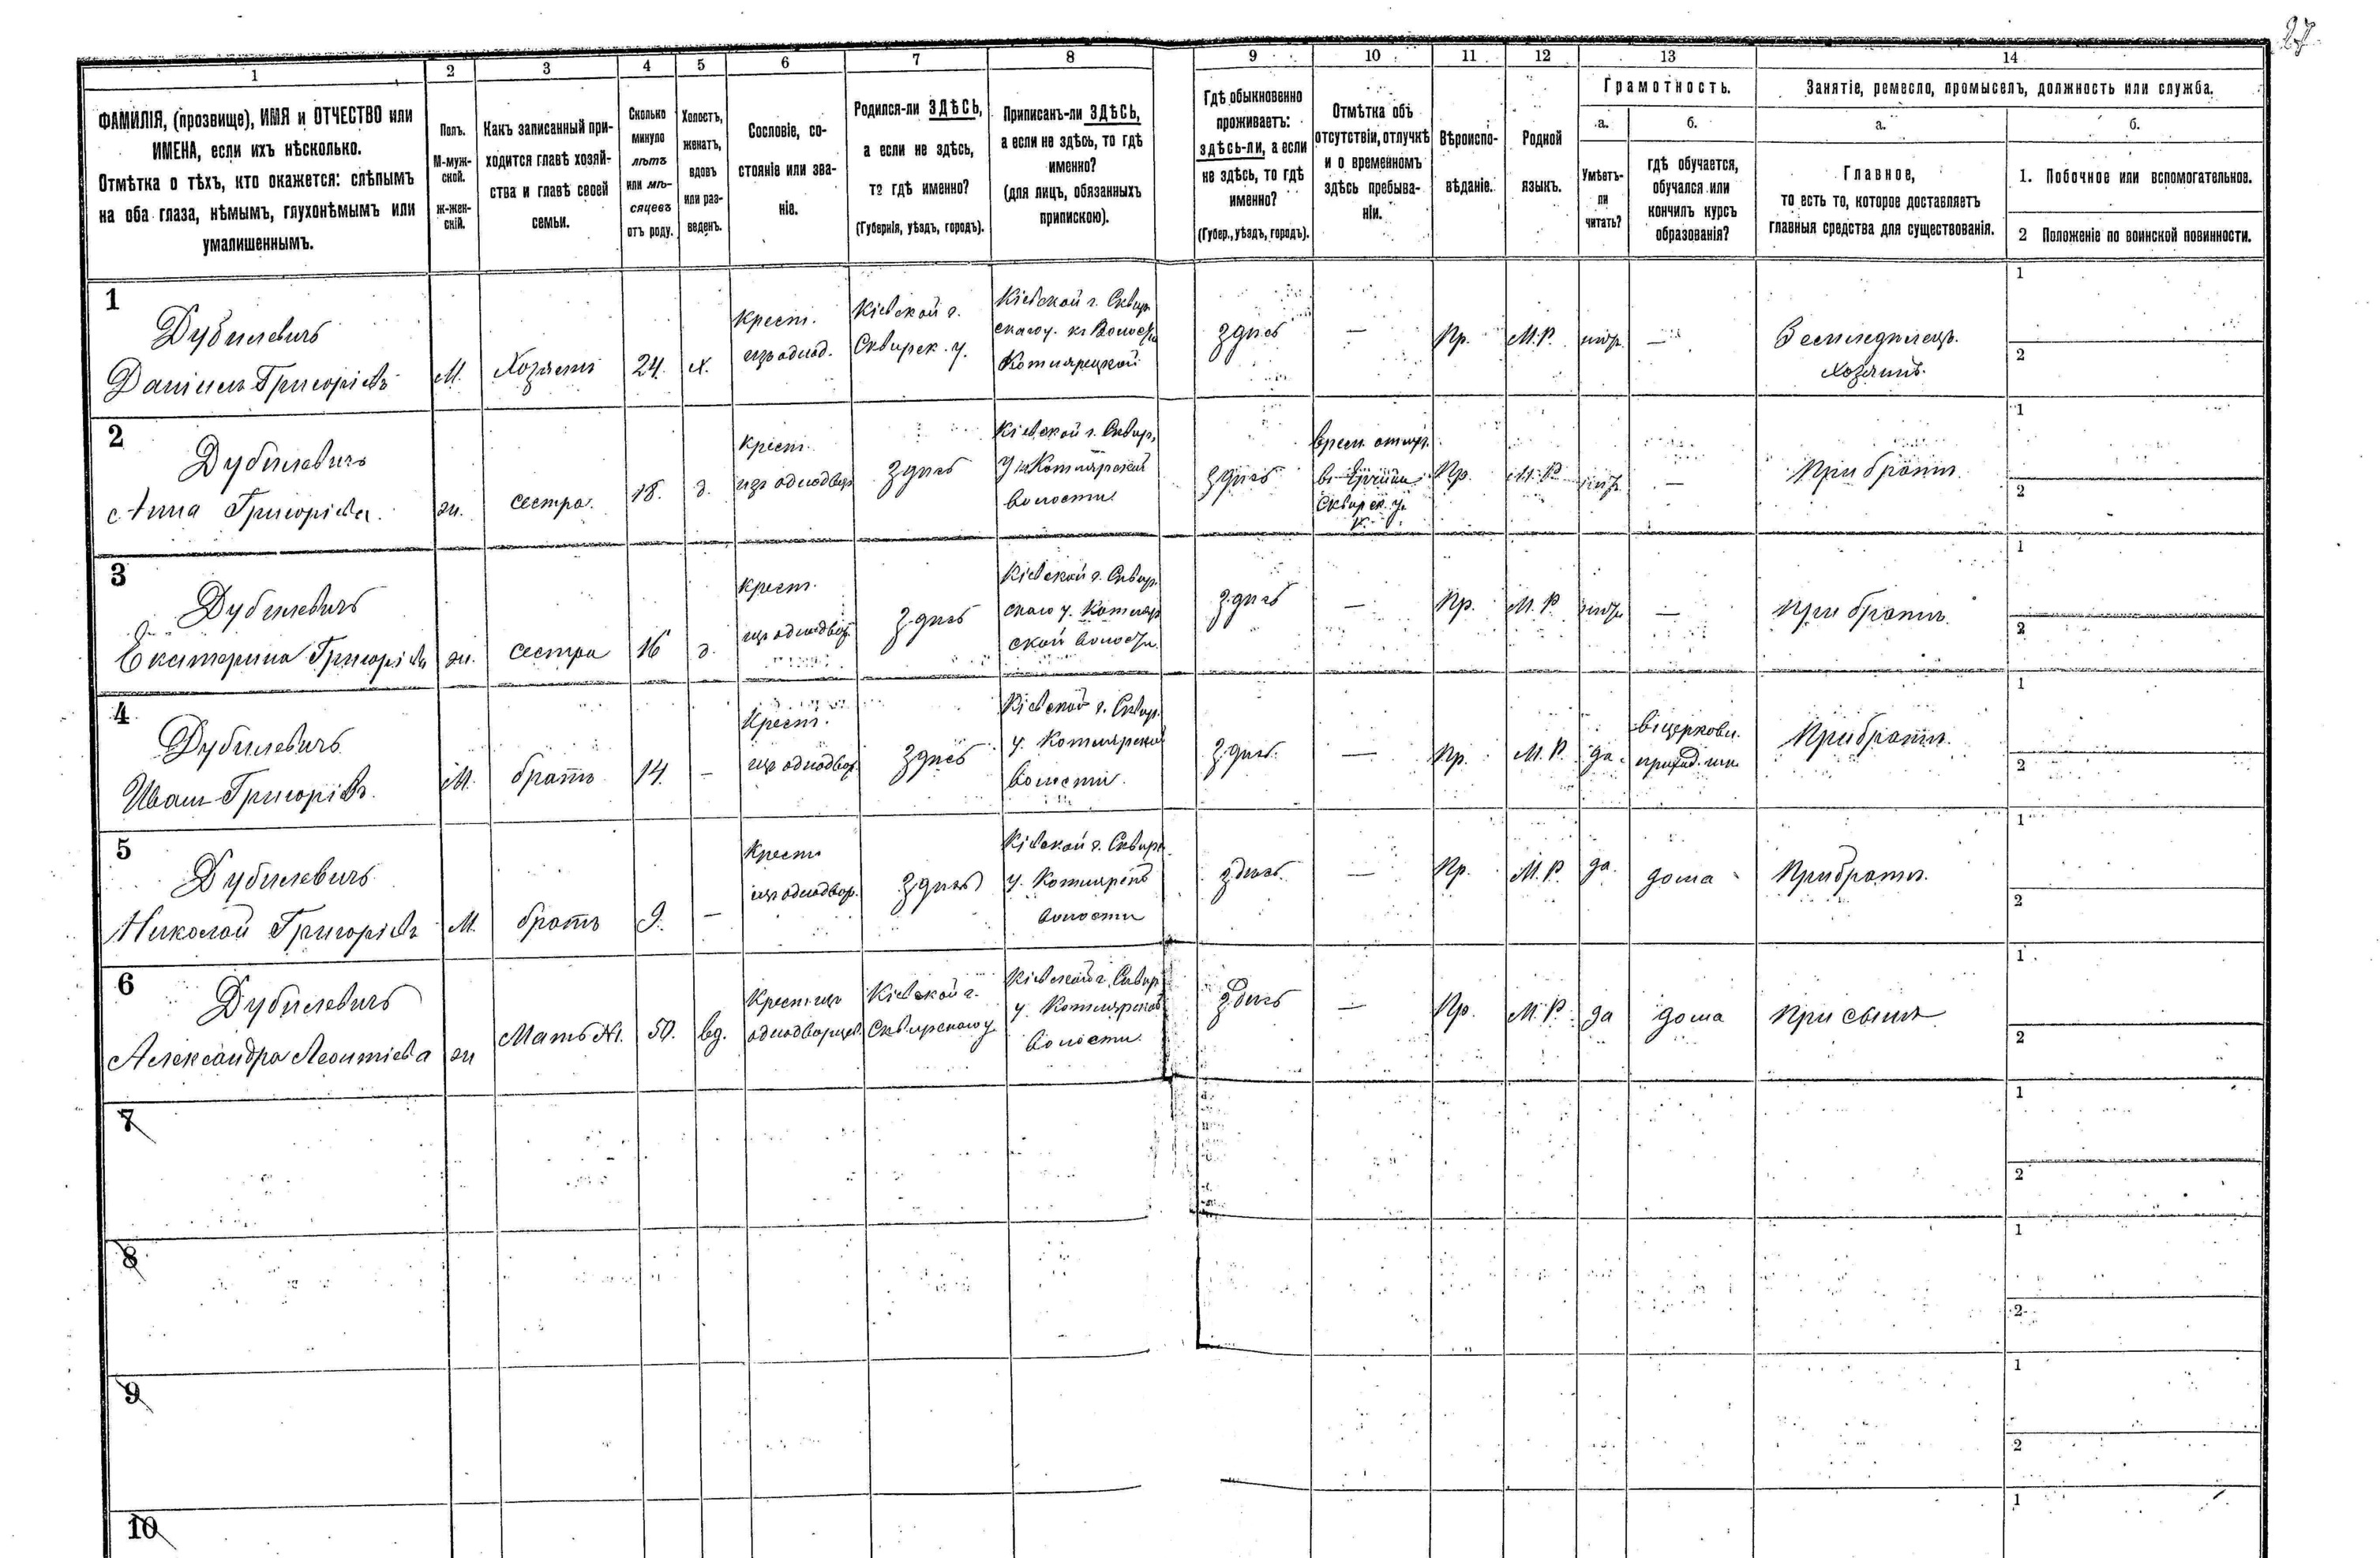 27
1 2 3 4 5 6 7 8 9 10 11 12 13 14
ФАМИЛІЯ, (прозвище), ИМЯ и ОТЧЕСТВО или
ИМЕНА, если ихъ нѣсколько.
Отмѣтка о тѣхъ, кто окажется: слѣпымъ
на оба глаза, нѣмымъ, глухонѣмымъ или
умалишеннымъ.
Полъ.
М-муж-
ской.
ж-жен-
скій.
Какъ записанный при-
ходится главѣ хозяй-
ства и главѣ своей
семьи.
Сколько
минуло
лѣтъ
или мѣ-
сяцевъ
отъ роду.
Холостъ,
женатъ,
вдовъ
или раз-
веденъ.
Сословіе, со-
стояніе или зва-
ніе.
Родился-ли ЗДѢСЬ,
а если не здѣсь,
то гдѣ именно?
(Губернія, уѣздъ, городъ).
Приписанъ-ли ЗДѢСЬ,
а если не здѣсь, то гдѣ
именно?
(для лицъ, обязанныхъ
припискою).
Гдѣ обыкновенно
проживаетъ:
здѣсь-ли, а если
не здѣсь, то гдѣ
именно?
(Губер., уѣздъ, городъ).
Отмѣтка объ
отсутствіи, отлучкѣ
и о временномъ
здѣсь пребыва-
ніи.
Вѣроиспо-
вѣданіе.
Родной
языкъ.
Грамотность.
а.
Умѣетъ-
ли
читать?
б.
гдѣ обучается,
обучался или
кончилъ курсъ
образованія?
Занятіе, ремесло, промыселъ, должность или служба.
а.
Главное,
то есть то, которое доставляетъ
главныя средства для существованія.
б.
1. Побочное или вспомогательное.
2 Положеніе по воинской повинности.
1
Дубилевичъ
Даніилъ Григоріевъ
М.
Хозяинъ
24.
х.
Крест.
изъ однод.
Кіевской г.
Сквирск. у.
Кіевской г. Сквир
скаго у. къ Волости
Котлярецкой
здѣсь
—
Пр.
М.Р.
нѣтъ
—
Земледѣлецъ.
хозяинъ.
1
2
2
Дубилевичъ
Анна Григоріева.
ж.
сестра.
18.
д.
Крест.
изъ однодвор
здѣсь
Кіевской г. Сквир,
у. Котлярской
волости
здѣсь
Сквирск. у.
Пр.
М.Р
нѣтъ
—
При братѣ
1
2
3
Дубилевичъ
Екатерина Григоріева
ж.
сестра
16
д.
Крест.
изъ однодвор.
здѣсь
Кіевской г. Сквир.
скаго у. Котляр
ской волости.
здѣсь
—
Пр.
М.Р.
нѣтъ
—
при братѣ.
1
2
4
Дубилевичъ
Иванъ Григоріевъ.
М.
братъ
14.
—
Крест.
изъ однодвор.
здѣсь
Кіевской г. Сквир.
у. Котлярской
волости.
здѣсь.
—
Пр.
М.Р.
да.
въ церковн.
приход. шк.
При братѣ.
1
2
5
Дубилевичъ
Николай Григоріевъ
М.
братъ
9.
—
Крест
изъ однодвор.
здѣсь
Кіевской г. Сквирс
у. Котлярскъ
волости
здѣсь.
—
Пр.
М.Р.
да.
дома
При братѣ.
1
2
6
Дубилевичъ
Александра Леонтіева
ж
Мать №1.
50.
вд.
Крест. изъ
однодворцевъ
Кіевской г.
Сквирскаго у
Кіевской г. Сквир
у. Котлярской
волости.
здѣсь
—
Пр.
М.Р.
да
дома
При сынѣ
1
2
7
1
2
8
1
2
9
1
2
10
1